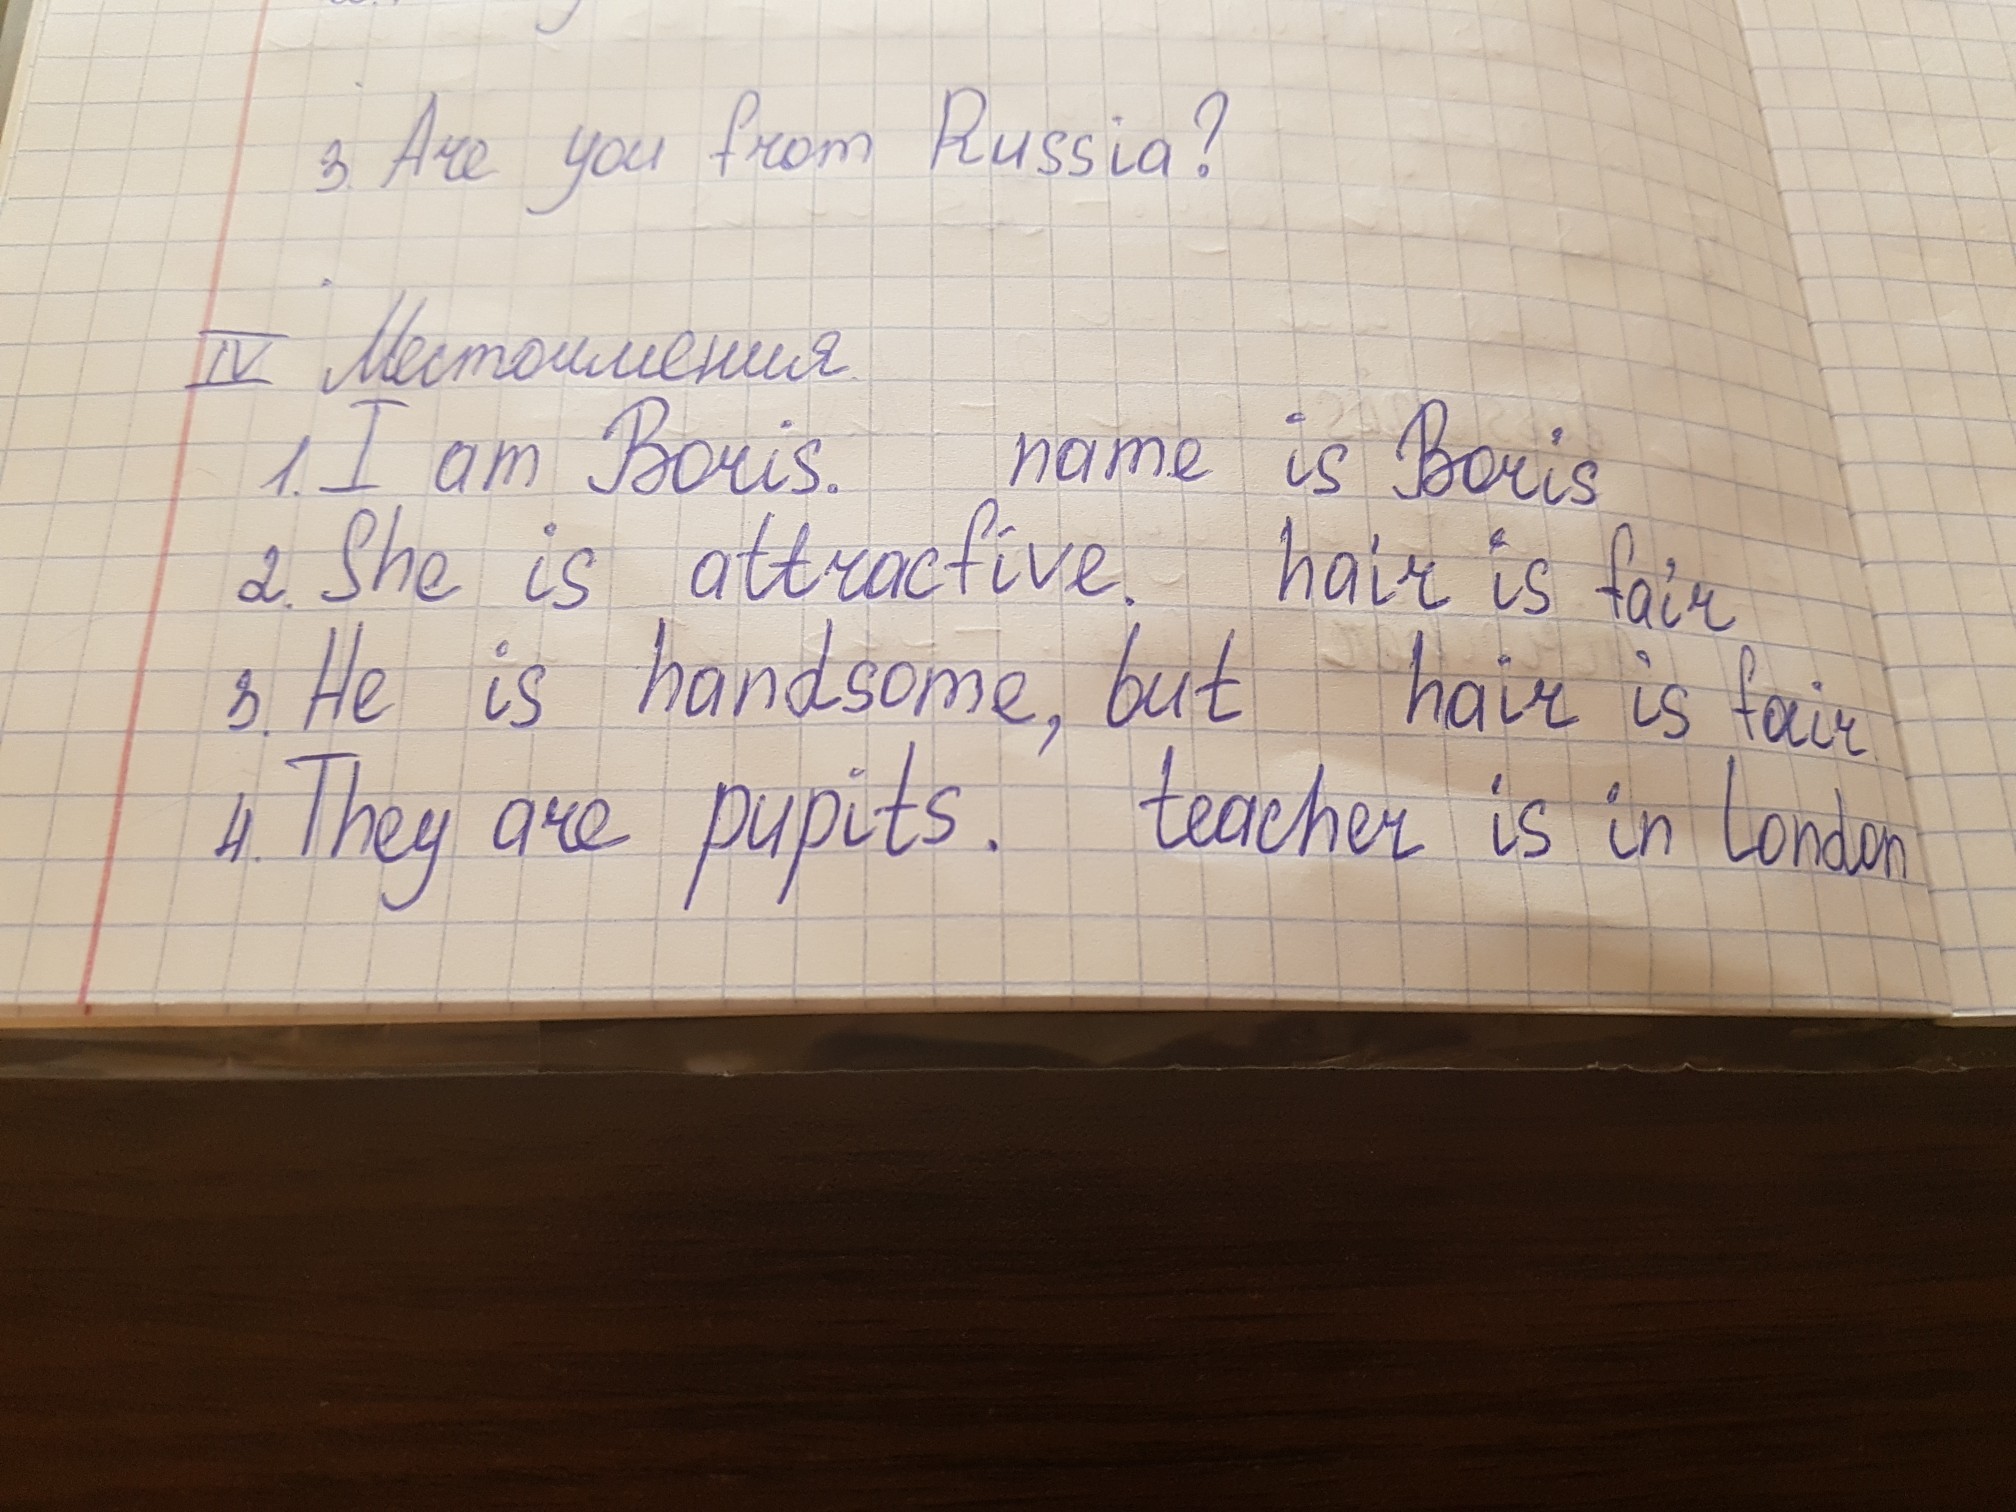 3. Are you from Russia?
IV Местоимения.
1. I am Boris. name is Boris
2. She is attractive. hair is fair
3. He is handsome, but hair is fair.
4. They are pupits. teacher is in London